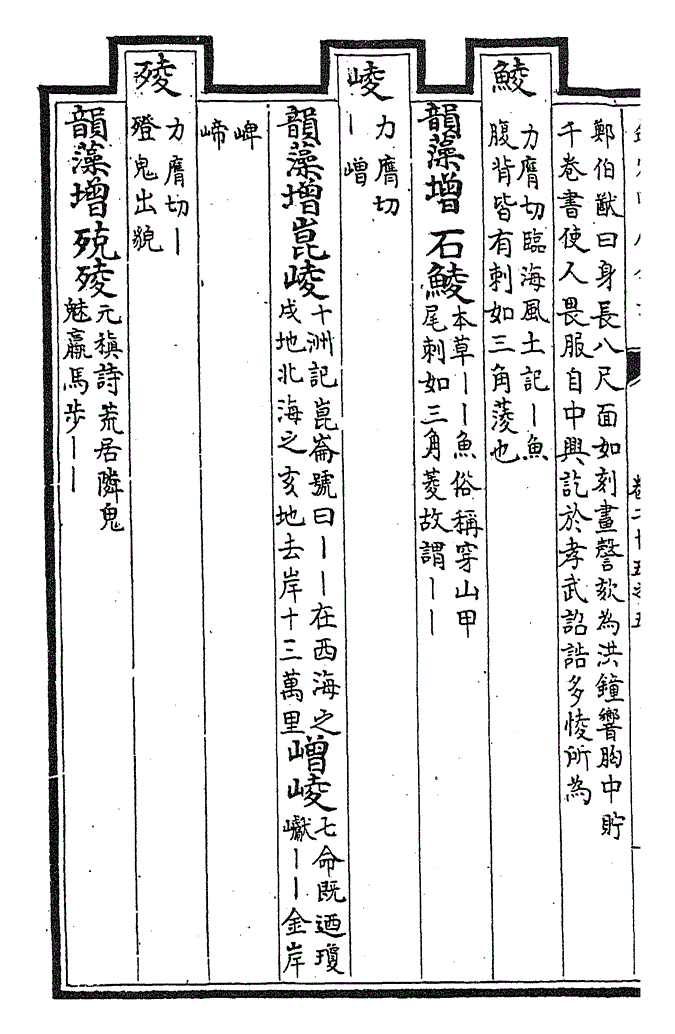 鄭伯猷曰身長八尺面如刻畫謦欬為洪鐘響胸中貯
千卷書使人畏服自中興訖於孝武詔誥多㥄所為
鯪
力膺切臨海風土記丨魚
腹背皆有刺如三角蔆也
韻藻增 石鯪
本草丨丨魚俗稱穿山甲
尾刺如三角菱故謂丨丨
崚
力膺切
丨嶒
韻藻增崑崚
十洲記崑崙號曰丨丨在西海之
戌地北海之亥地去岸十三萬里
嶒崚
七命既迺瓊
巘丨丨金岸
崥
崹
㱥
力膺切丨
𣩟鬼出貌
韻藻增殑㱥
元稹詩荒居隣鬼
魅羸馬步丨丨